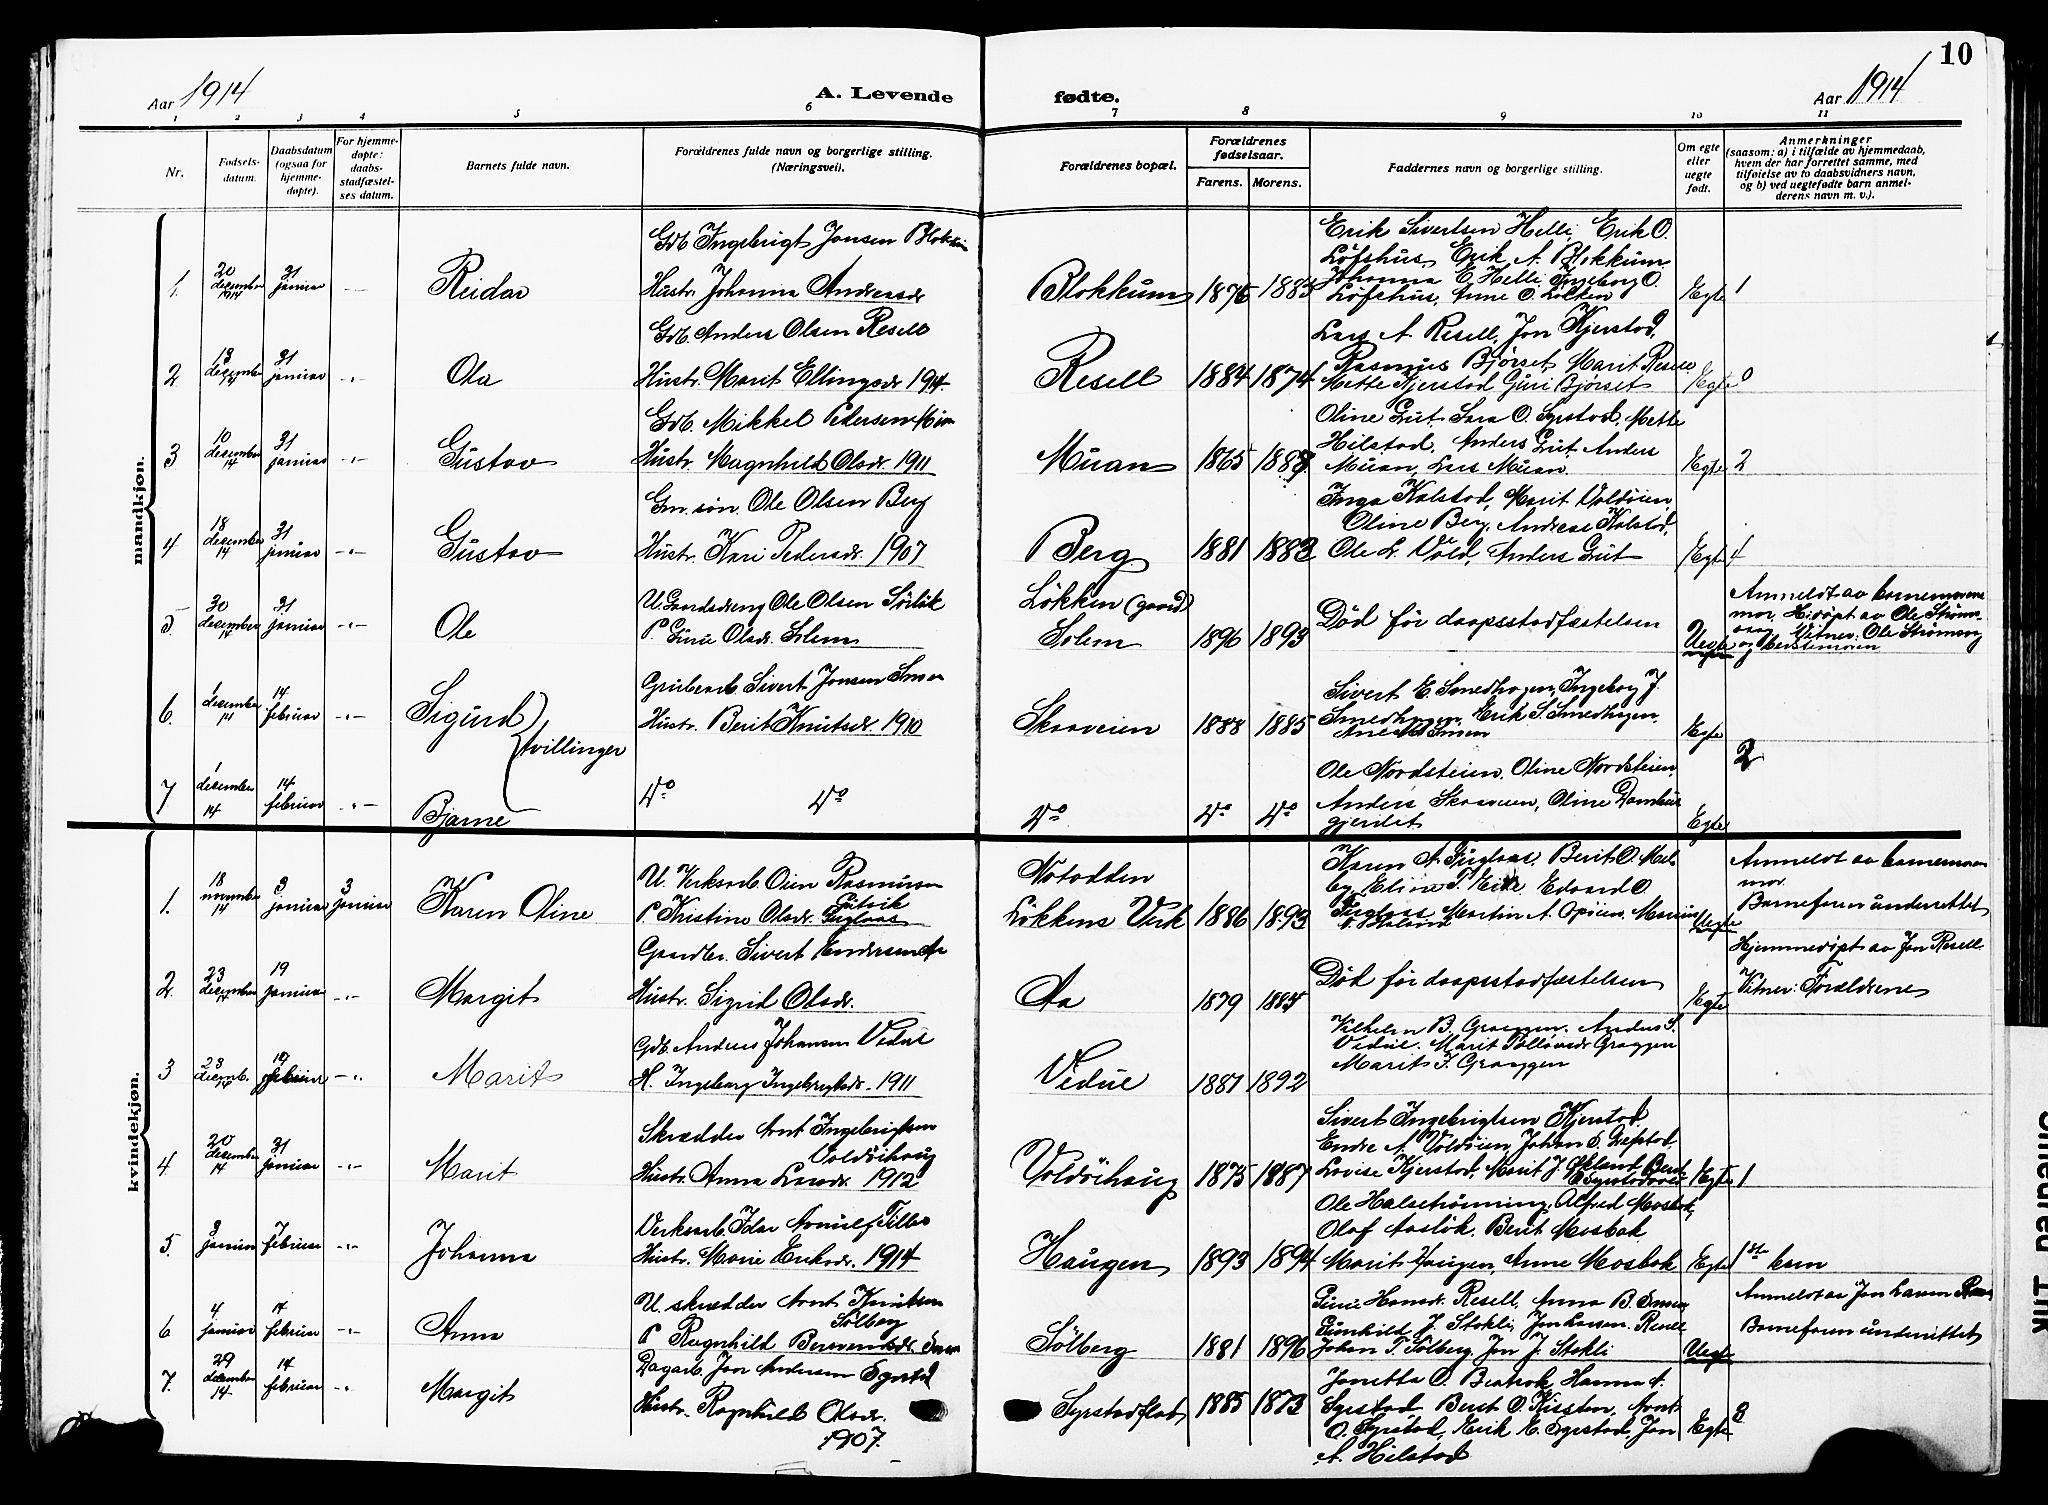 10
Aar 1914
A. Levende
fødte.
Aar 1914
1 2 3 4 5 6 7 8 9 10 11
Nr.
Fødsels-
datum.
Daabsdatum
(ogsaa for
hjemme-
døpte).
For hjemme-
døpte:
daabs-
stadfæstel-
ses datum.
Barnets fulde navn.
Forældrenes fulde navn og borgerlige stilling.
(Næringsvei).
Forældrenes bopæl.
Forældrenes
fødselsaar.
Farens. Morens.
Faddernes navn og borgerlige stilling.
Om egte
eller
uegte
født.
Anmerkninger
(saasom: a) i tilfælde av hjemmedaab,
hvem der har forrettet samme, med
tilføielse av to daabsvidners navn,
og b) ved uegtefødte barn anmel-
derens navn m. v.).
mandkjøn.
1.
20
december
1914
31
januar
Reidar
Gdb. Ingebrigt Jonsen Blokkum
Hustr. Johanna Andreasdr
Blokkum
1875 1885
Erik Sivertsen Helli Erik O.
Løfshus, Erik A. Blokkum
Johanna E. Helli Ingeborg O.
Løfshus, Anne O. Løkken
Egte 1
2
13
december
14
31
januar
Ola
Gdb. Anders Olsen Resell
Hustr. Marit Ellingsdr 1914.
Resell
1884 1874
Lars A. Resell, Jon Kjerstad,
Rasmus Bjørset Marit Resell
Mette Kjerstad Guri Bjørset
Egte 0
3
10
december
14
31
januar
Gustav
Gdb. Mikkel Pedersen Muan
Hustr. Magnhild Olsdr. 1911
Muan
1865
Oline Grut. Sara O. Syrstad, Mette
Hilstad. Anders Grut Anders
Muan, Lars Muan.
Egte 2
4
18
december
14
31
januar
Gustav
Gm. søn. Ole Olsen Berg
Hustr. Kari Pedersdr. 1907
Berg
1881 1882
Inga Kalstad, Marit Voldøien,
Oline Berg, Andreas Kalstad,
Ole L. Vold, Anders Grut
Egte 4
5.
30
december
14
31
januar
Ole
U. Gaardsdreng Ole Olsen Sørløk
P. Guru Olsdr. Solem
Løkken (gaard)
Solem
1896 1893
Død før daapsstadfæstelsen
Uegte
Anmeldt av barnemorens
mor. Hj.døpt av Ole Strøms-
aag. Vitner: Ole Strømsag
og bedstemoren
6.
1
december
14
14
februar
Sigurd
tvillinger
Grubearb. Sivert Jonsen Smen
Hustr. Berit Knutsdr. 1910
Skraaveien
1888 1885
Sivert E. Smedhagen, Ingeborg J.
Smedhagen. Erik S. Smedhagen.
Egte
2
7
1
december
14
14
februar
Bjarne
Do Do
Do
Do Do
Ole Nordsteien, Oline Nordsteien,
Anders Skraaveien, Oline Damhus
gjerdet
Egte
kvindekjøn.
1.
18
november
14
3
januar
3
januar
Karen Oline
U. Verksarb. Oien Rasmussen
Gutvik
P. Kristine Olsdr. Fuglaas
Notodden
Løkkens Verk
1886 1893
Karen A. Fuglaas, Berit O. Mel-
by, Eline T. Eide Edvard O.
Fuglaas Martin A. Opøien, Marius
Uegte
Anmeldt av barnemoren
mor.
Barnefaren underrettet
2
23
december
14
19
januar
Margit
Gaardbr. Sivert Endresen Aa
Hustr. Sigrid Olsdr.
Aa
1879 1884
Død før daapsstadfæstelsen
Egte
Hjemmedøpt av Jon Resell.
Vitner: Forældrene
3
23
decemb.
14
19
februar
Marit
Gdb. Anders Johansen Vedul
H. Ingeborg Ingebrigtsdr. 1911
Vedul
1887 1892
Vilhelm B. Graggen. Anders S.
Vedul. Marit Pollevsdr Graggen
Marit I. Graggen
4
20
december
14
31
januar
Marit
Skrædder Arnt Ingebrigtsen
Voldøihaug
Hustr. Anna Larsdr. 1912
Voldøihaug
1875 1887
Sivert Ingebrigtsen Kjerstad
Endre A. Voldøien, Johan S. Grefstad
Lovise Kjerstad, Marit J. Økland Berit
Egte 1
5.
3
januar
7
februar
Johanna
Verksarb. Idar Arnulf Tiller
Hustr. Marie Eriksdr. 1914
Haugen
1893 1894
Ole Halsetrønning, Alfred Mosbak,
Olaf Aasløk. Berit Mosbak
Marit Haugen, Anne Mosbak
Egte 1ste barn
6
4
januar
14
februar
Anna
U. skrædder Arnt Knutsen
Sølberg
P Ragnhild
Sølberg
1881 1896
Guru Hansdr. Resell, Anna B. Smen
Gunhild J. Stokli, Jon Larsen Resell
Johan T. Sølberg, Jon J. Stokli
Uegte
Anmeldt av Jon Larsen
Barnefaren underrettet
7.
29
december
14
14
februar
Margit
Dagarb. Jon Andersen Syrstad
Hustr. Ragnhild Olsdr.
1907.
Syrstadflat
1885 1873
Jonetta O. Bratbak Hanna A.
Syrstad Berit O. Kisten, Arnt
O. Syrstad, Erik E. Syrstad, Jon
A. Hilstad
Egte 3